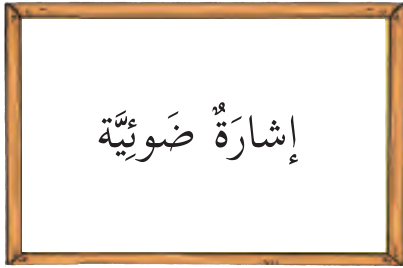 إشارَةٌ ضَوئِيَّة